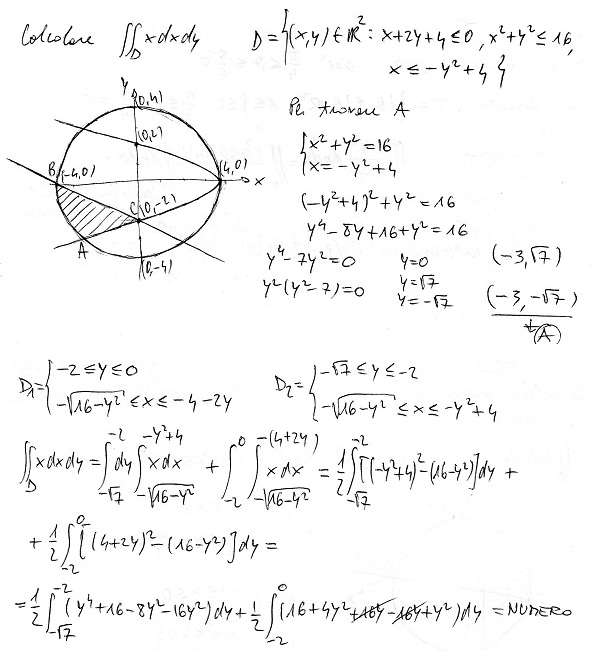 Calcolare ∬_D x dx dy    D = {(x,y) ∈ ℝ² : x+2y+4 ≤ 0, x²+y² ≤ 16,
x ≤ -y²+4}
Per trovare A
y (0,4)
(0,2)
{x²+y²=16
{x=-y²+4
B (-4,0)    (4,0)    x
(-y²+4)²+y²=16
C (0,-2)
y⁴-8y+16+y²=16
A
(0,-4)
y⁴-7y²=0    y=0    (-3,√7)
y²(y²-7)=0    y=√7
y=-√7    (-3,-√7)
↓
(A)
D₁= {-2 ≤ y ≤ 0    D₂= {-√7 ≤ y ≤ -2
{-√(16-y²) ≤ x ≤ -4-2y    {-√(16-y²) ≤ x ≤ -y²+4
∬_D x dx dy = ∫_{-√7}^{-2} dy ∫_{-√(16-y²)}^{-y²+4} x dx + ∫_{-2}^{0} ∫_{-√(16-y²)}^{-(4+2y)} x dx = 1/2 ∫_{-√7}^{-2} [(-y²+4)²-(16-y²)] dy +
+ 1/2 ∫_{-2}^{0} [(4+2y)²-(16-y²)] dy =
= 1/2 ∫_{-√7}^{-2} (y⁴+16-8y²-16y²) dy + 1/2 ∫_{-2}^{0} (16+4y²+16y-16y+y²) dy = NUMERO